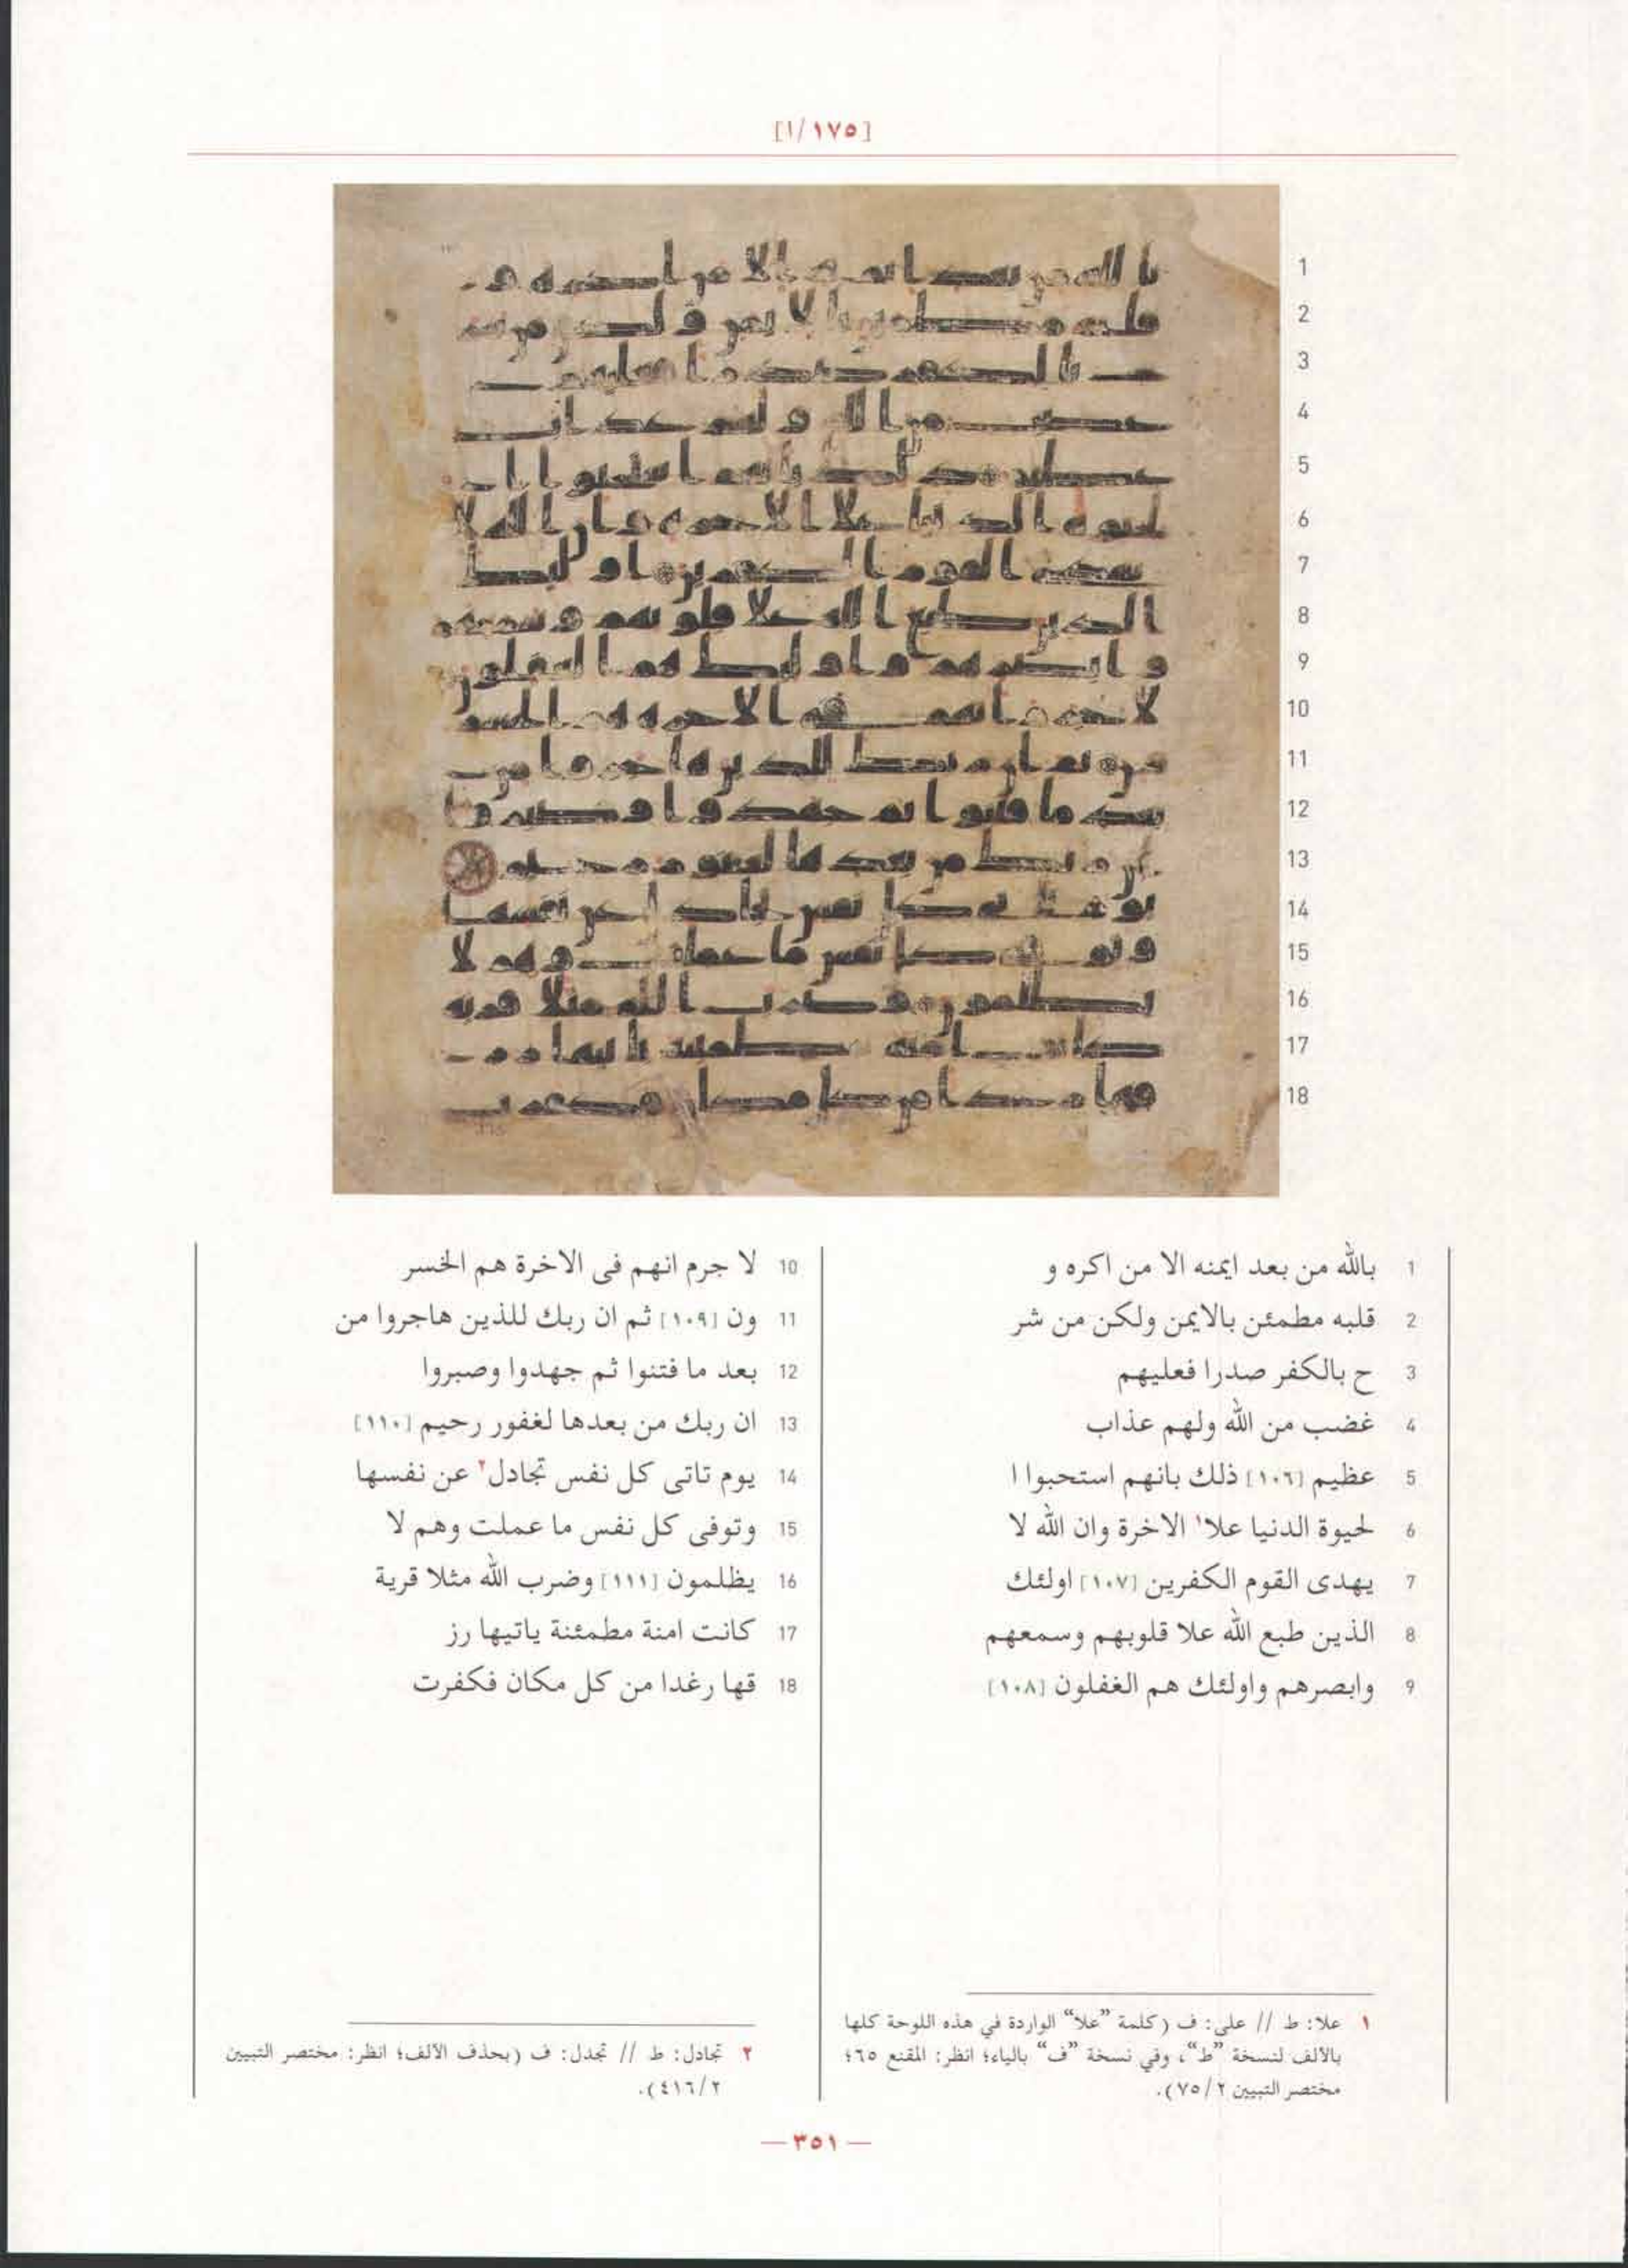 [١/١٧٥]
1
2
3
4
5
6
7
8
9
10
11
12
13
14
15
16
17
18
1 بالله من بعد ايمنه الا من اكره و
2 قلبه مطمئن بالايمن ولكن من شر
3 ح بالكفر صدرا فعليهم
4 غضب من الله ولهم عذاب
5 عظيم [١٠٦] ذلك بانهم استحبوا ا
6 لحيوة الدنيا علا١ الاخرة وان الله لا
7 يهدى القوم الكفرين [١٠٧] اولئك
8 الذين طبع الله علا قلوبهم وسمعهم
9 وابصرهم واولئك هم الغفلون [١٠٨]
10 لا جرم انهم فى الاخرة هم الخسر
11 ون [١٠٩] ثم ان ربك للذين هاجروا من
12 بعد ما فتنوا ثم جهدوا وصبروا
13 ان ربك من بعدها لغفور رحيم [١١٠]
14 يوم تاتى كل نفس تجادل٢ عن نفسها
15 وتوفى كل نفس ما عملت وهم لا
16 يظلمون [١١١] وضرب الله مثلا قرية
17 كانت امنة مطمئنة ياتيها رز
18 قها رغدا من كل مكان فكفرت
١ علا: ط // على: ف (كلمة ”علا“ الواردة في هذه اللوحة كلها
بالألف لنسخة ”ط“، وفي نسخة ”ف“ بالياء؛ انظر: المقنع ٦٥؛
مختصر التبيين ٢/٧٥).
٢ تجادل: ط // تجدل: ف (بحذف الألف؛ انظر: مختصر التبيين
٢/٤١٦).
— ٣٥١ —